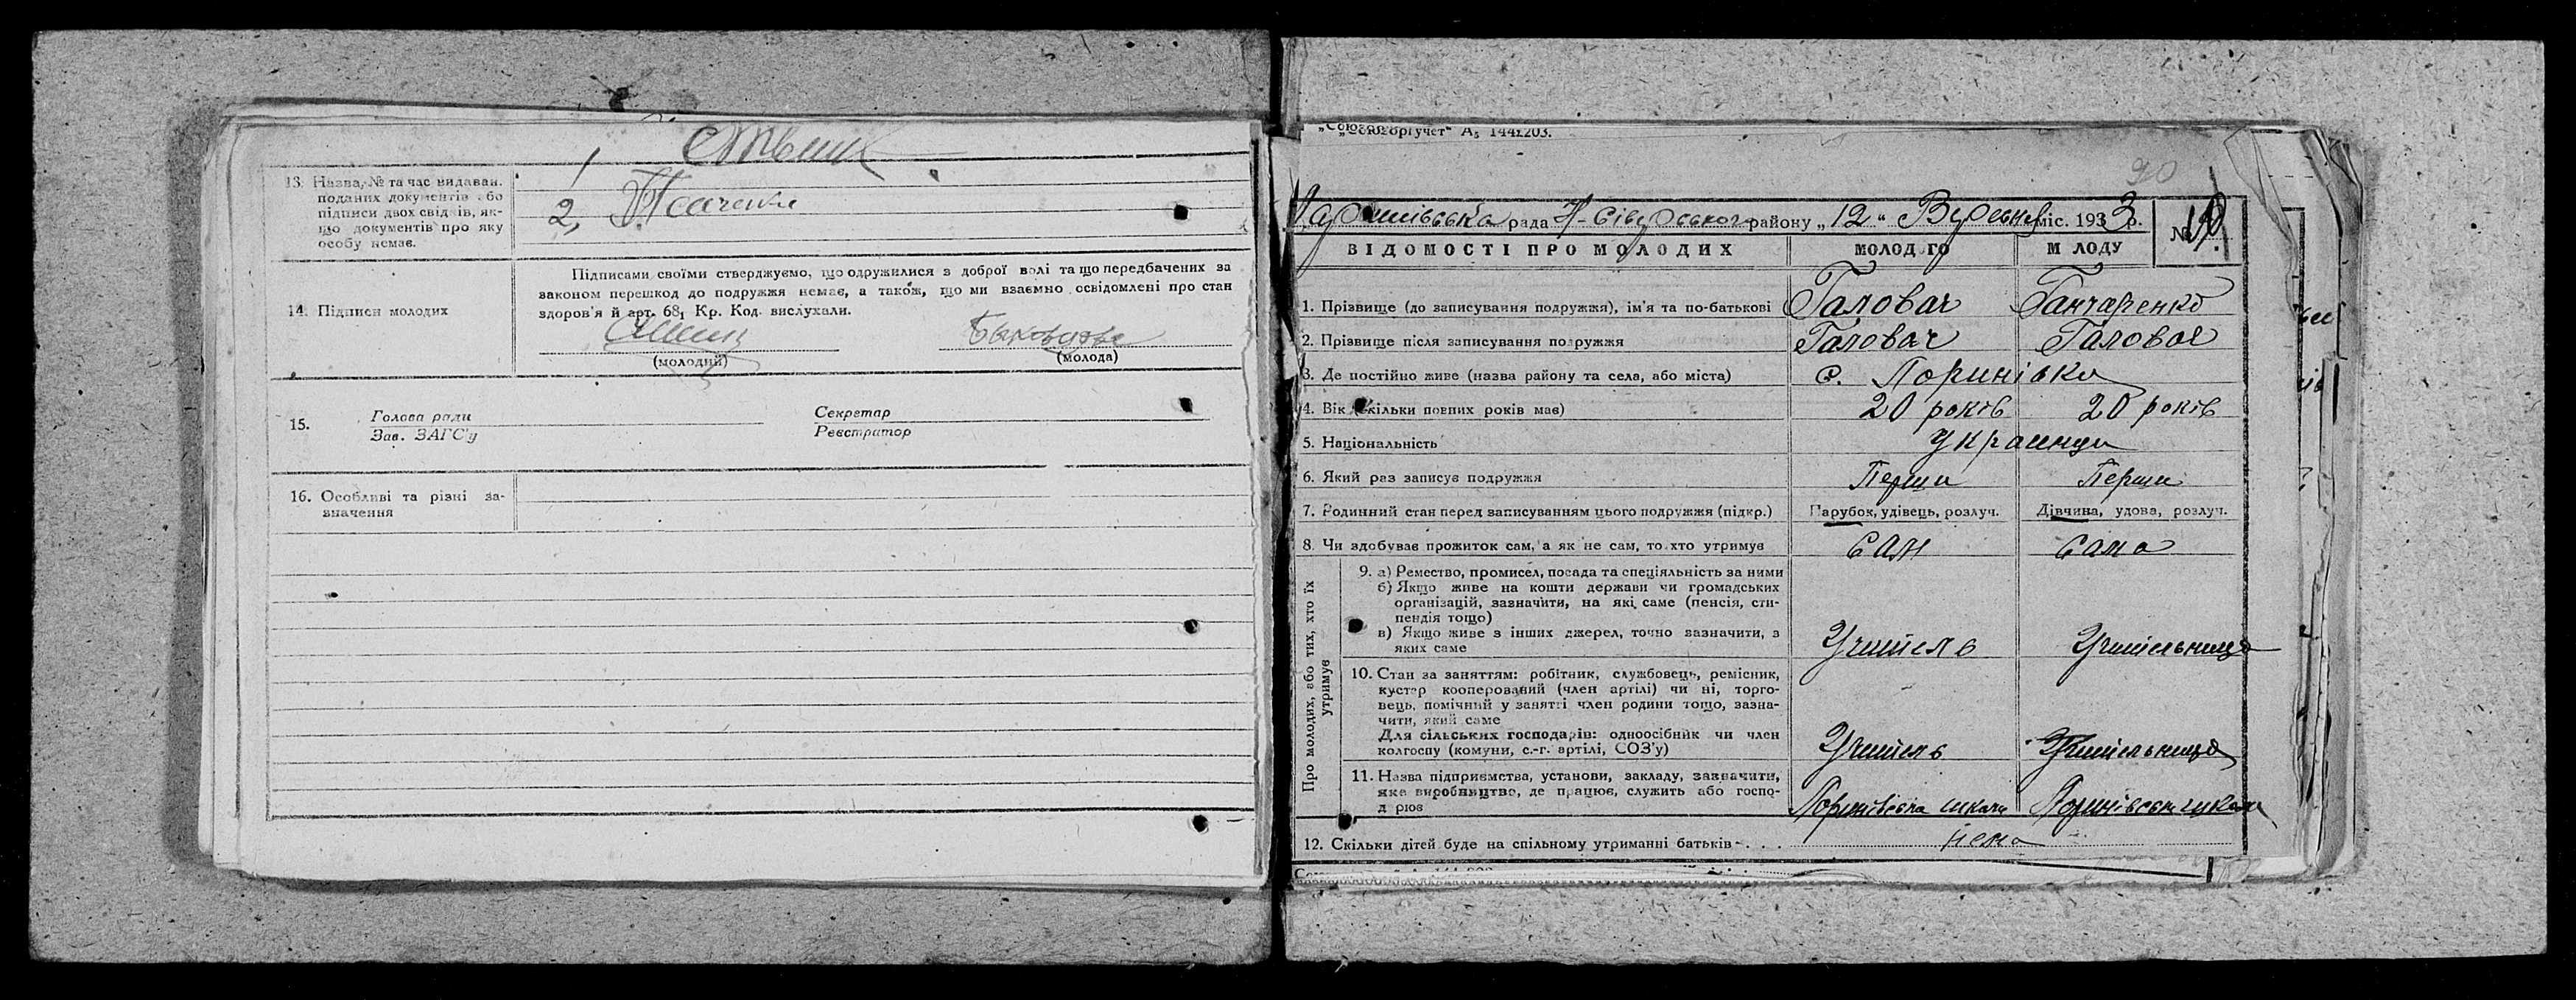 Ствик
1
13. Назва, № та час видаван. поданих документів або підписи двох свідків, якщо документів про яку особу немає.
2,
14. Підписи молодих
Підписами своїми стверджуємо, що одружилися з доброї волі та що передбачених за
законом перешкод до подружжя немає, а також, що ми взаємно освідомлені про стан
здоров'я й арт. 68₁ Кр. Код. вислухали.
(молодий)
(молода)
15.
Голова ради
Зав. ЗАГС'у
Секретар
Реєстратор
16. Особливі та різні зазначення
„Союзоргучет" 144203.
90
рада Н-Сіверського району „12" міс. 1933 р.
№
ВІДОМОСТІ ПРО МОЛОДИХ
МОЛОД ГО
М ЛОДУ
1. Прізвище (до записування подружжя), ім'я та по-батькові
Галовач
Ганчаренко
2. Прізвище після записування подружжя
Галовач
Галовач
3. Де постійно живе (назва району та села, або міста)
с.
4. Вік (скільки повних років має)
20 років
20 років
5. Національність
Украинци
6. Який раз записує подружжя
Перши
Перши
7. Родинний стан перед записуванням цього подружжя (підкр.)
Парубок, удівець, розлуч.
Дівчина, удова, розлуч.
8. Чи здобуває прожиток сам, а як не сам, то хто утримує
сам
сама
Про молодих, або тих, хто їх утримує
9. а) Ремество, промисел, посада та спеціяльність за ними
б) Якщо живе на кошти держави чи громадських
організацій, зазначити, на які саме (пенсія, сти-
пендія тощо)
в) Якщо живе з інших джерел, точно зазначити, з
яких саме
Учитель
Учительница
10. Стан за заняттям: робітник, службовець, ремісник,
кустар кооперований (член артілі) чи ні, торго-
вець, помічний у занятті член родини тощо, зазна-
чити, який саме
Для сільських господарів: одноосібник чи член
колгоспу (комуни, с.-г. артілі, СОЗ'у)
Учитель
Учительница
11. Назва підприємства, установи, закладу, зазначити,
яке виробництво, де працює, служить або госпо-
д рює
школа
школа
12. Скільки дітей буде на спільному утриманні батьків . . .
нема